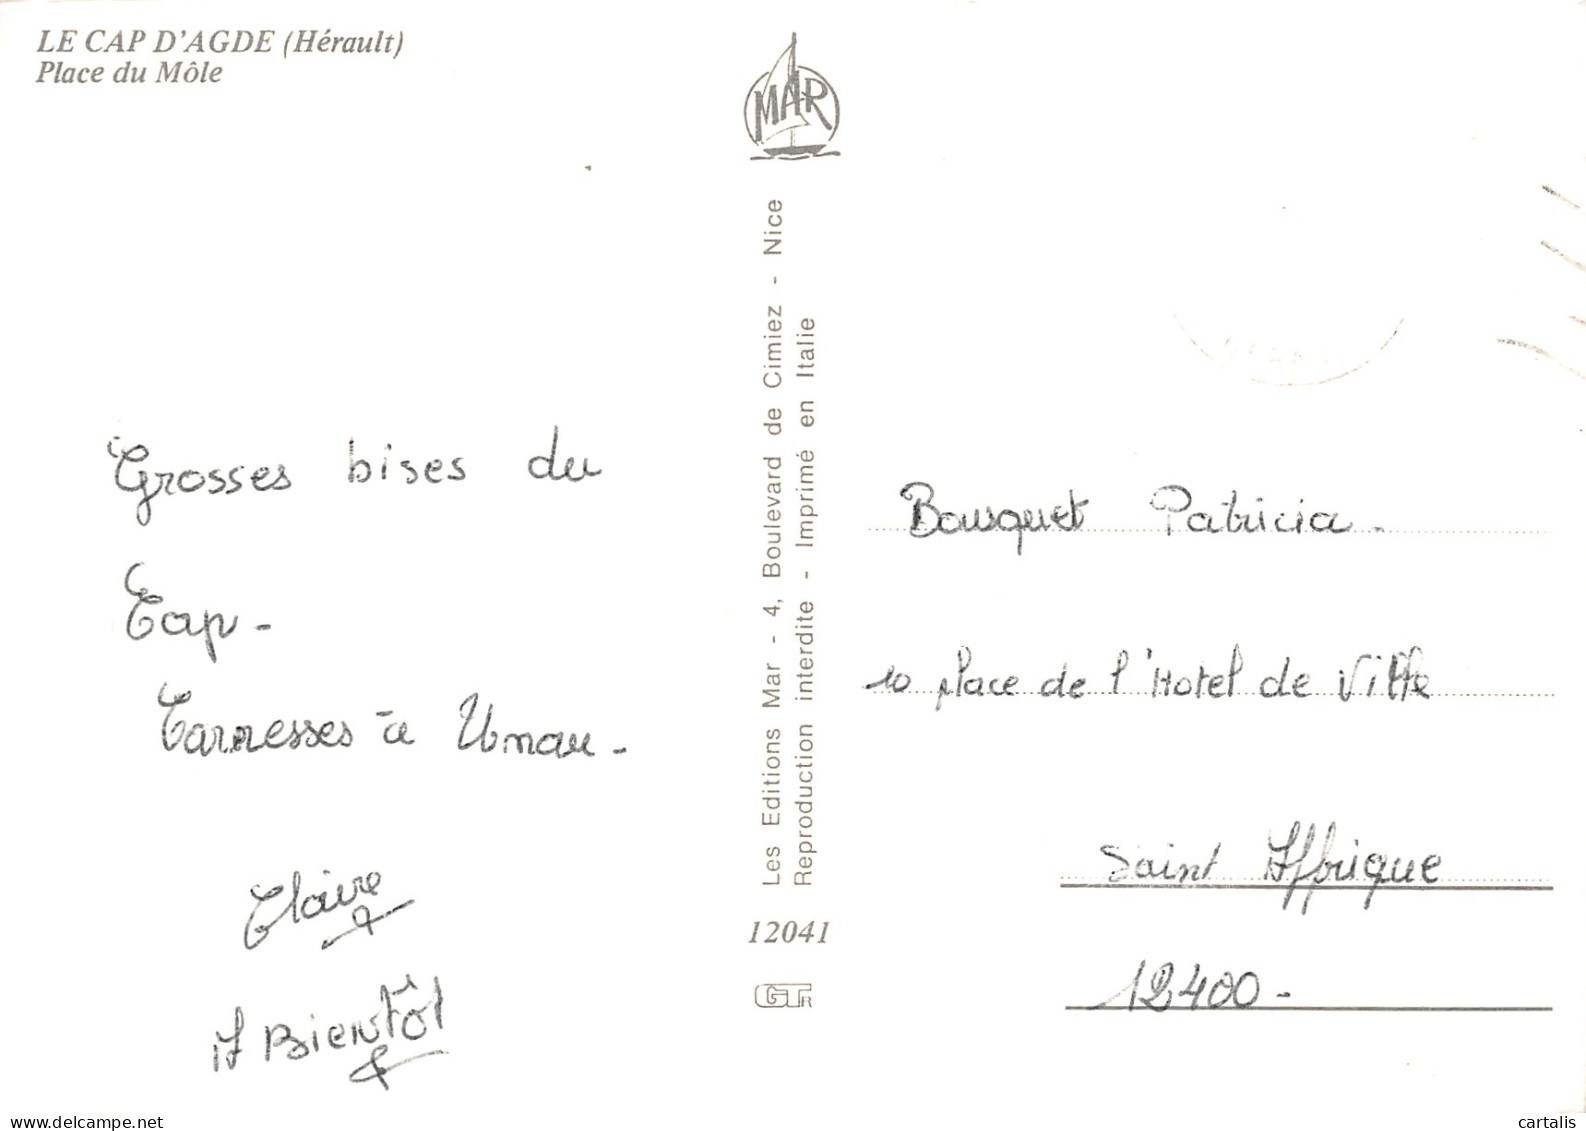 LE CAP D'AGDE (Hérault)
Place du Môle
MAR
Grosses bises du
Cap -
Carresses à Unau -
Claire
A Bientôt
Les Editions Mar - 4, Boulevard de Cimiez - Nice
Reproduction interdite - Imprimé en Italie
12041
GTR
Bousquet Patricia -
10 place de l'Hotel de Ville
Saint Affrique
12400 -
delcampe.net
cartalis